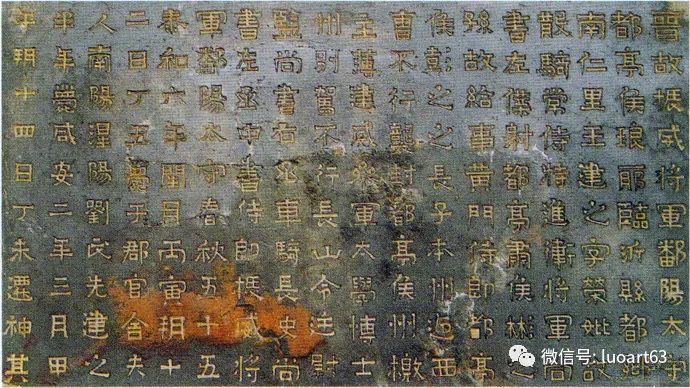 晉故振威將軍鄱陽太守
都亭侯琅耶臨沂縣都鄉
南仁里王建之字榮妣故
散騎常侍特進衛將軍尚
書左僕射都亭肅侯彬之
孫故給事黃門侍郎都亭
侯彭之之長子本州迎西
曹不行襲封都亭侯州檄
主簿建威參軍太學博士
州別駕不行長山令廷尉
監尚書右丞車騎長史尚
書左丞中書侍郎振威將
軍鄱陽太守春秋五十五
泰和六年閏月丙寅朔十
二日丁丑薨于郡官舍夫
人南陽涅陽劉氏先建之
半年薨咸安二年三月甲
午朔十四日丁未遷神其
微信号: luoart63